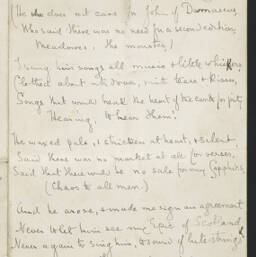 does at case for John of Damascus
Who said there was no need for a second edition,
the monster)
I sang him songs all music & little whispers
Clothed about with down, tears & kisses,
Songs that would break the heart of the earth for pity
Hearing, to hear them.
He waxed pale, & stricken at heart, & silent
Said there was no market at all for verses,
Said that there would be no sale for my Sapphics
(Chaos to all men)
And he arose, & made me sign an agreement
Never to let him see my Epic of Scotland
Never again to sing him, to sound of lute-strings